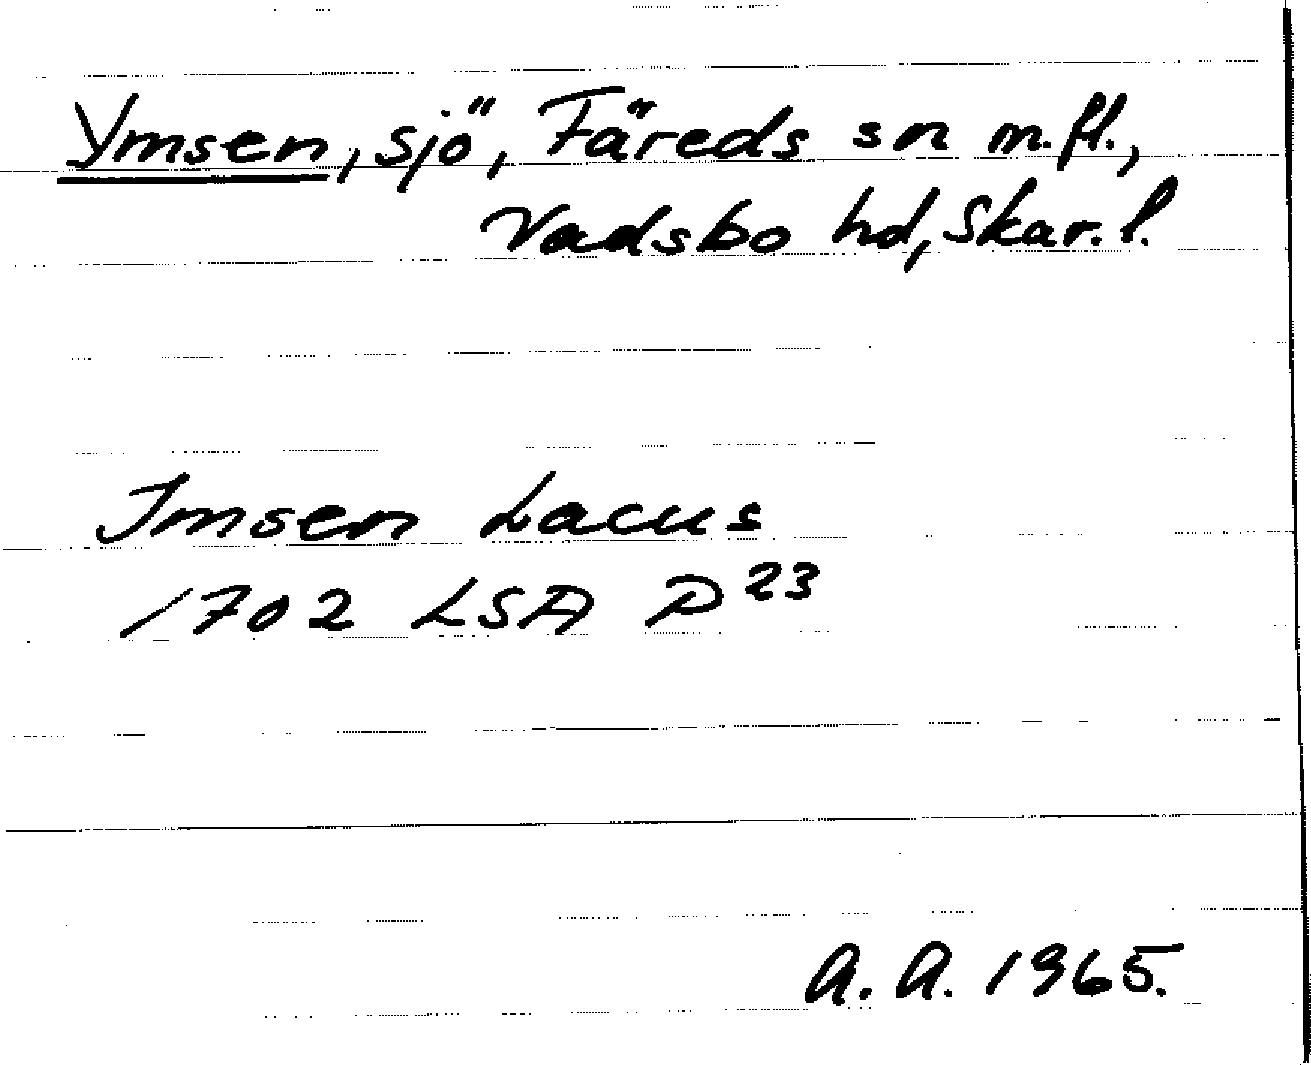 Ymsen, sjö, Färeds sn m.fl.,
Vadsbo hd, Skar. l.
Imsen Lacus
1702 LSA P 23
A. A. 1965.